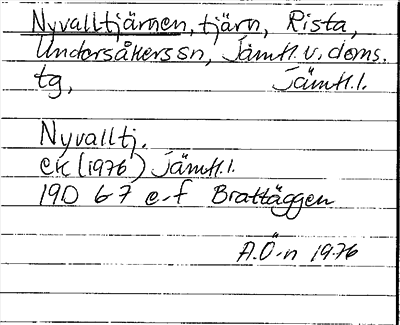 Nyvalltjärnen, tjärn, Rista,
Undersåkers sn, Jämtl. v. doms.
tg, Jämtl. l.
Nyvalltj.
ek (1976) Jämtl. l.
19D 6-7 e-f Brattäggen
A.Ö-n 1976